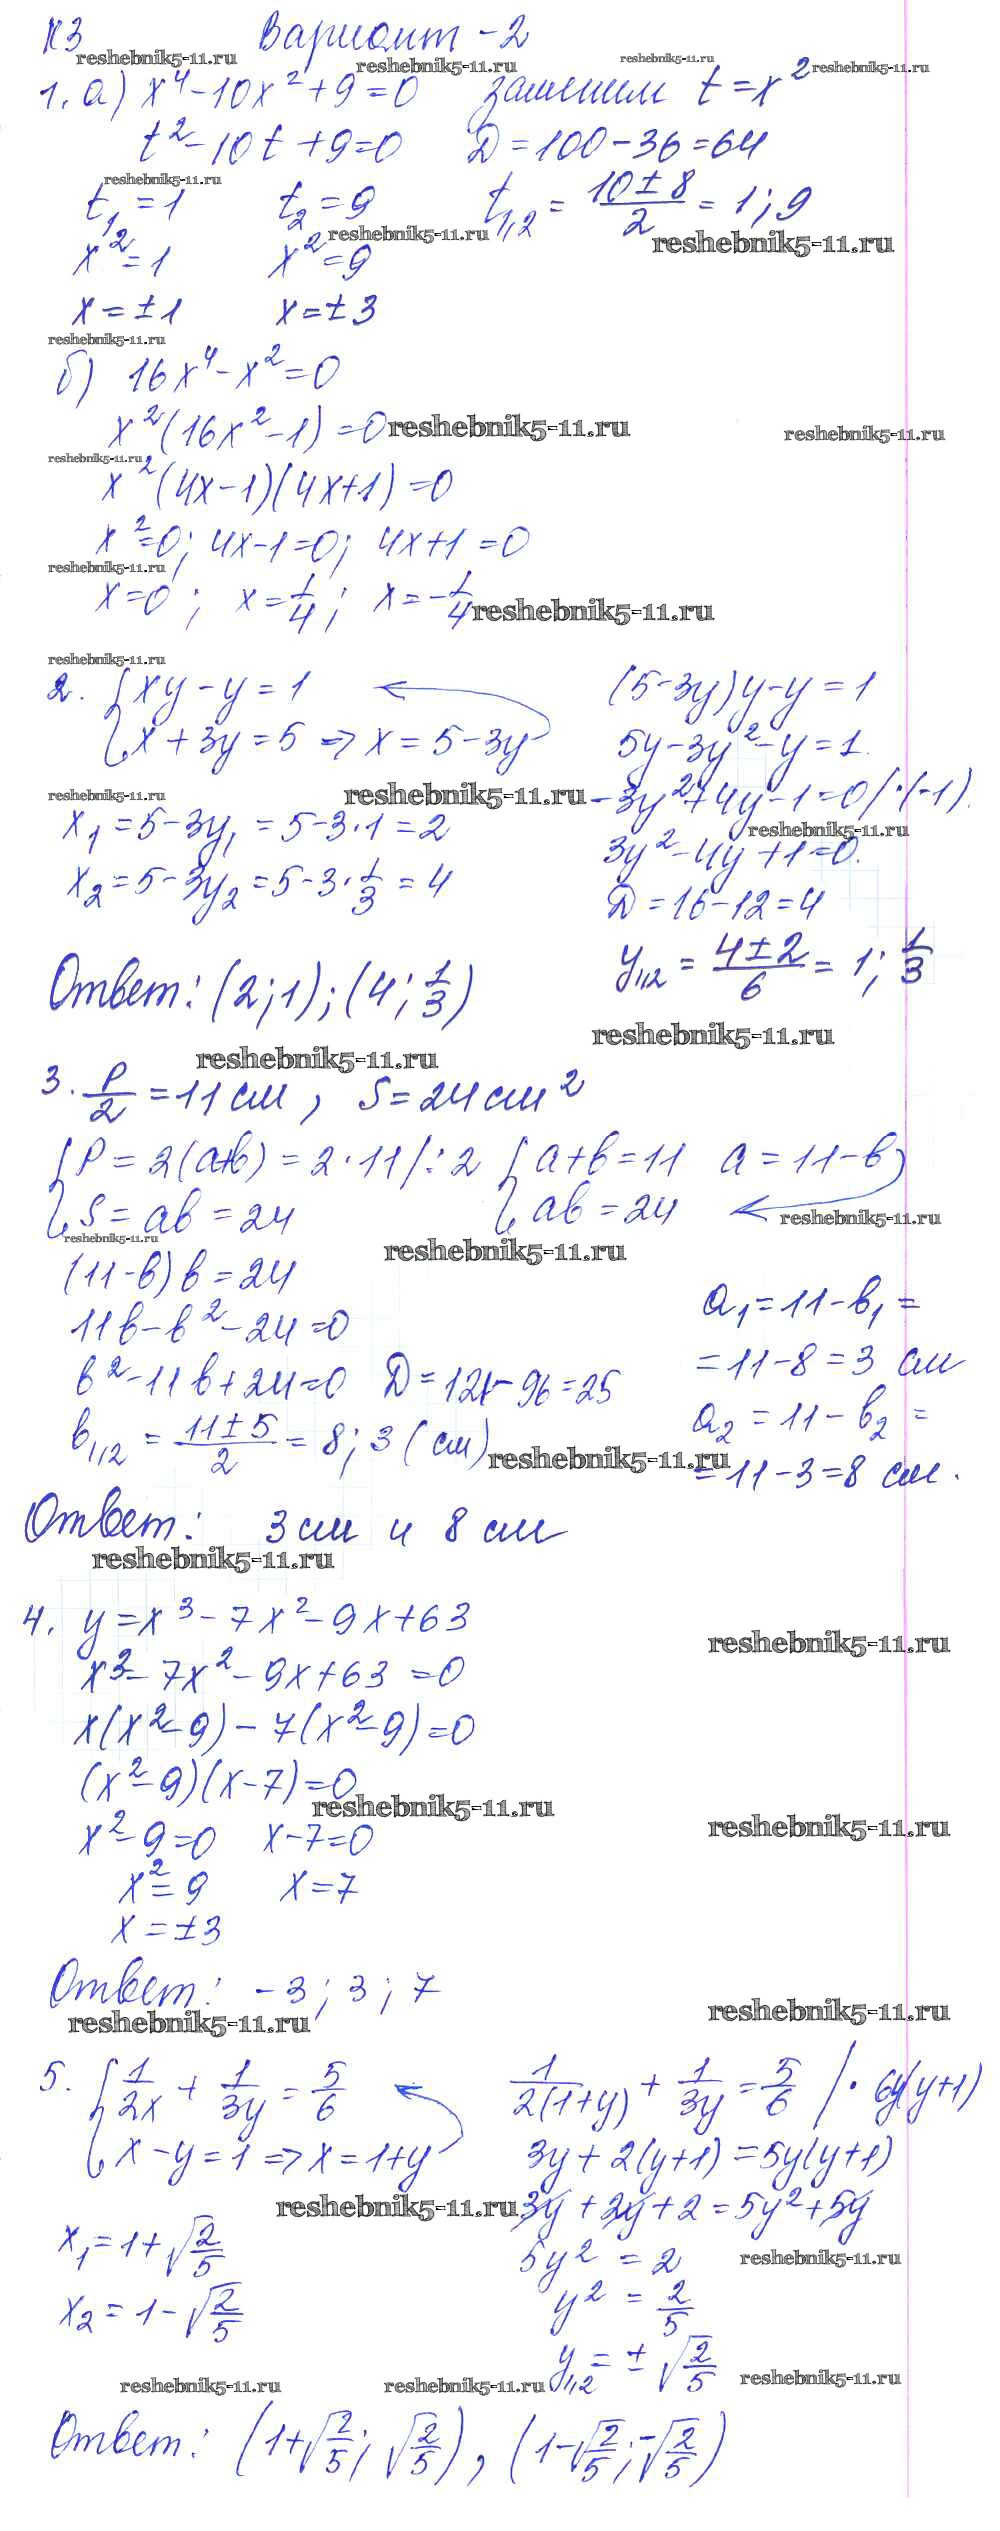 К3 Вариант - 2
reshebnik5-11.ru reshebnik5-11.ru reshebnik5-11.ru reshebnik5-11.ru
1. а) x⁴ - 10x² + 9 = 0 заменим t = x²
t² - 10t + 9 = 0 D = 100 - 36 = 64
reshebnik5-11.ru
t₁ = 1 t₂ = 9 t₁,₂ = (10 ± 8)/2 = 1; 9
reshebnik5-11.ru reshebnik5-11.ru
x² = 1 x² = 9
x = ±1 x = ±3
reshebnik5-11.ru
б) 16x⁴ - x² = 0
x²(16x² - 1) = 0
reshebnik5-11.ru reshebnik5-11.ru
reshebnik5-11.ru
x²(4x - 1)(4x + 1) = 0
x² = 0; 4x - 1 = 0; 4x + 1 = 0
reshebnik5-11.ru
x = 0; x = 1/4; x = -1/4
reshebnik5-11.ru
reshebnik5-11.ru
2. { xy - y = 1 (5 - 3y)y - y = 1
x + 3y = 5 => x = 5 - 3y 5y - 3y² - y = 1.
reshebnik5-11.ru reshebnik5-11.ru
-3y² + 4y - 1 = 0 / · (-1).
x₁ = 5 - 3y₁ = 5 - 3 · 1 = 2
reshebnik5-11.ru
3y² - 4y + 1 = 0.
x₂ = 5 - 3y₂ = 5 - 3 · 1/3 = 4
D = 16 - 12 = 4
y₁,₂ = (4 ± 2)/6 = 1; 1/3
Ответ: (2; 1); (4; 1/3)
reshebnik5-11.ru
reshebnik5-11.ru
3. P/2 = 11 см, S = 24 см²
{ P = 2(a+b) = 2 · 11 /: 2 { a + b = 11 a = 11 - b
S = ab = 24 ab = 24
reshebnik5-11.ru
reshebnik5-11.ru reshebnik5-11.ru
(11 - b) b = 24
a₁ = 11 - b₁ =
11b - b² - 24 = 0
= 11 - 8 = 3 см
b² - 11b + 24 = 0 D = 121 - 96 = 25
a₂ = 11 - b₂ =
b₁,₂ = (11 ± 5)/2 = 8; 3 (см)
reshebnik5-11.ru
= 11 - 3 = 8 см.
Ответ: 3 см и 8 см
reshebnik5-11.ru
4. y = x³ - 7x² - 9x + 63
reshebnik5-11.ru
x³ - 7x² - 9x + 63 = 0
x(x² - 9) - 7(x² - 9) = 0
(x² - 9)(x - 7) = 0
reshebnik5-11.ru
reshebnik5-11.ru
x² - 9 = 0 x - 7 = 0
x² = 9 x = 7
x = ±3
Ответ: -3; 3; 7
reshebnik5-11.ru reshebnik5-11.ru
5. { 1/2x + 1/3y = 5/6 1/2(1+y) + 1/3y = 5/6 / · 6y(y+1)
x - y = 1 => x = 1 + y 3y + 2(y+1) = 5y(y+1)
reshebnik5-11.ru
3y + 2y + 2 = 5y² + 5y
x₁ = 1 + √2/5 5y² = 2
reshebnik5-11.ru
x₂ = 1 - √2/5 y² = 2/5
y₁,₂ = ± √2/5
reshebnik5-11.ru reshebnik5-11.ru reshebnik5-11.ru
Ответ: (1+√2/5; √2/5), (1-√2/5; -√2/5)